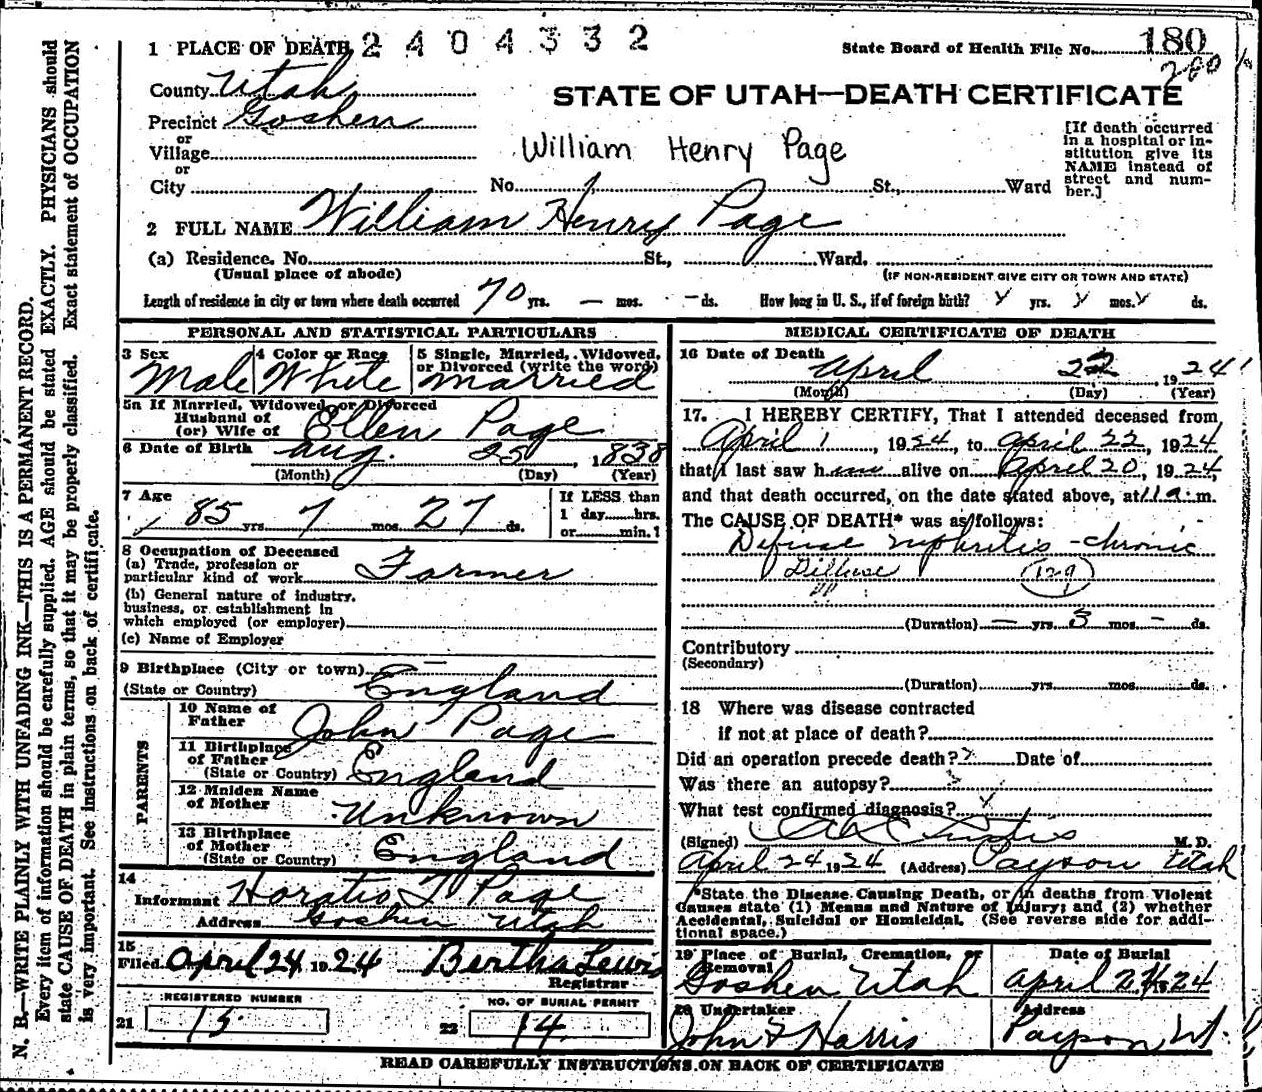 1 PLACE OF DEATH 2404332 State Board of Health File No. 180
200
County Utah
STATE OF UTAH—DEATH CERTIFICATE
Precinct Goshen
or
Village
William Henry Page
[If death occurred in a hospital or in-
stitution give its
NAME instead of
street and num-
ber.]
or
City No. St., Ward
2 FULL NAME William Henry Page
(a) Residence. No. St., Ward.
(Usual place of abode) (IF NON-RESIDENT GIVE CITY OR TOWN AND STATE)
Length of residence in city or town where death occurred 70 yrs. — mos. - ds. How long in U. S., if of foreign birth? yrs. mos. ds.
PERSONAL AND STATISTICAL PARTICULARS
3 Sex
Male
4 Color or Race
White
5 Single, Married, Widowed,
or Divorced (write the word)
Married
5a If Married, Widowed, or Divorced
Husband of
(or) Wife of Ellen Page
6 Date of Birth Aug. 25, 1838
(Month) (Day) (Year)
7 Age
85 yrs 7 mos. 27 ds.
If LESS than
1 day hrs.
or min.?
8 Occupation of Deceased
(a) Trade, profession or
particular kind of work Farmer
(b) General nature of industry,
business, or establishment in
which employed (or employer)
(c) Name of Employer
9 Birthplace (City or town) —
(State or Country) England
PARENTS
10 Name of
Father John Page
11 Birthplace
of Father
(State or Country) England
12 Maiden Name
of Mother Unknown
13 Birthplace
of Mother
(State or Country) England
14
Informant Horatio T Page
Address Goshen Utah
15
Filed April 24 1924 Bertha Lewis
Registrar
REGISTERED NUMBER
21 15
NO. OF BURIAL PERMIT
22 14
MEDICAL CERTIFICATE OF DEATH
16 Date of Death
April 22, 1924
(Month) (Day) (Year)
17. I HEREBY CERTIFY, That I attended deceased from
April 1, 1924, to April 22, 1924
that I last saw him alive on April 20, 1924,
and that death occurred, on the date stated above, at 11 a. m.
The CAUSE OF DEATH* was as follows:
Defuse nephritis - chronic
Diffuse 129
(Duration) — yrs. 3 mos. - ds.
Contributory
(Secondary)
(Duration) yrs mos. ds.
18 Where was disease contracted
if not at place of death?
Did an operation precede death? Date of
Was there an autopsy?
What test confirmed diagnosis?
(Signed) Curtis M. D.
April 24 1924 (Address) Payson Utah
*State the Disease Causing Death, or in deaths from Violent
Causes state (1) Means and Nature of Injury; and (2) whether
Accidental, Suicidal or Homicidal. (See reverse side for addi-
tional space.)
19 Place of Burial, Cremation, or
Removal
Goshen Utah
Date of Burial
April 24 1924
20 Undertaker
John F Harris
Address
Payson Ut.
READ CAREFULLY INSTRUCTIONS ON BACK OF CERTIFICATE
N. B.—WRITE PLAINLY WITH UNFADING INK—THIS IS A PERMANENT RECORD.
Every item of information should be carefully supplied. AGE should be stated EXACTLY. PHYSICIANS should
state CAUSE OF DEATH in plain terms, so that it may be properly classified. Exact statement of OCCUPATION
is very important. See instructions on back of certificate.